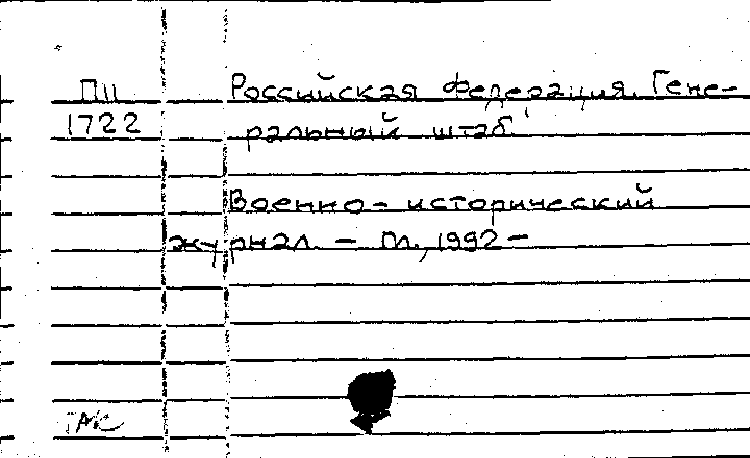 ПII Российская Федерация. Гене-
1722 ральный штаб.
Военно-исторический
журнал. – М., 1992 –
ТАК